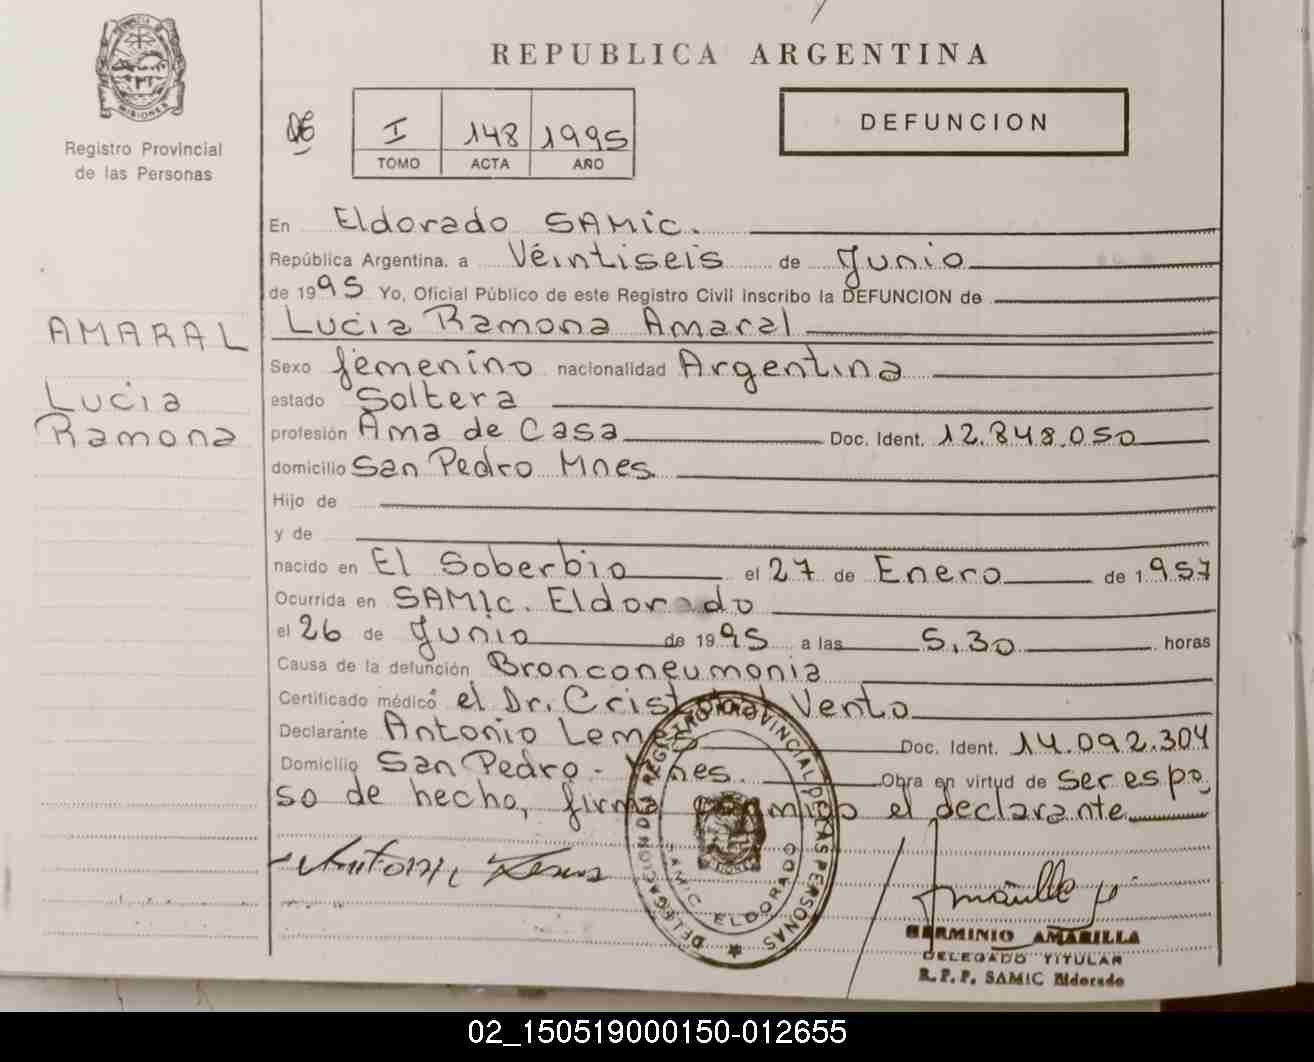 PROVINCIA DE
MISIONES
Registro Provincial
de las Personas
AMARAL
Lucia
Ramona
REPUBLICA ARGENTINA
DE I 148 1995
TOMO ACTA AÑO
DEFUNCION
En Eldorado SAMic.
República Argentina. a Veintiseis de Junio
de 1995 Yo, Oficial Público de este Registro Civil inscribo la DEFUNCION de
Lucia Ramona Amaral
Sexo femenino nacionalidad Argentina
estado Soltera
profesión Ama de Casa Doc. Ident. 12.848.050
domicilio San Pedro Mnes.
Hijo de
y de
nacido en El Soberbio el 27 de Enero de 1957
Ocurrida en SAMic. Eldorado
el 26 de Junio de 1995 a las 5.30 horas
Causa de la defunción Bronconeumonia
Certificado médico el Dr. Cristobal Vento
Declarante Antonio Lemes Doc. Ident. 14.092.304
Domicilio San Pedro - Mnes. Obra en virtud de ser espo
so de hecho, firma conmigo el declarante
DELEGACION DEL REGISTRO PROVINCIAL DE LAS PERSONAS
SAMIC ELDORADO
HERMINIO AMARILLA
DELEGADO TITULAR
R. P. P. SAMIC Eldorado
02_150519000150-012655